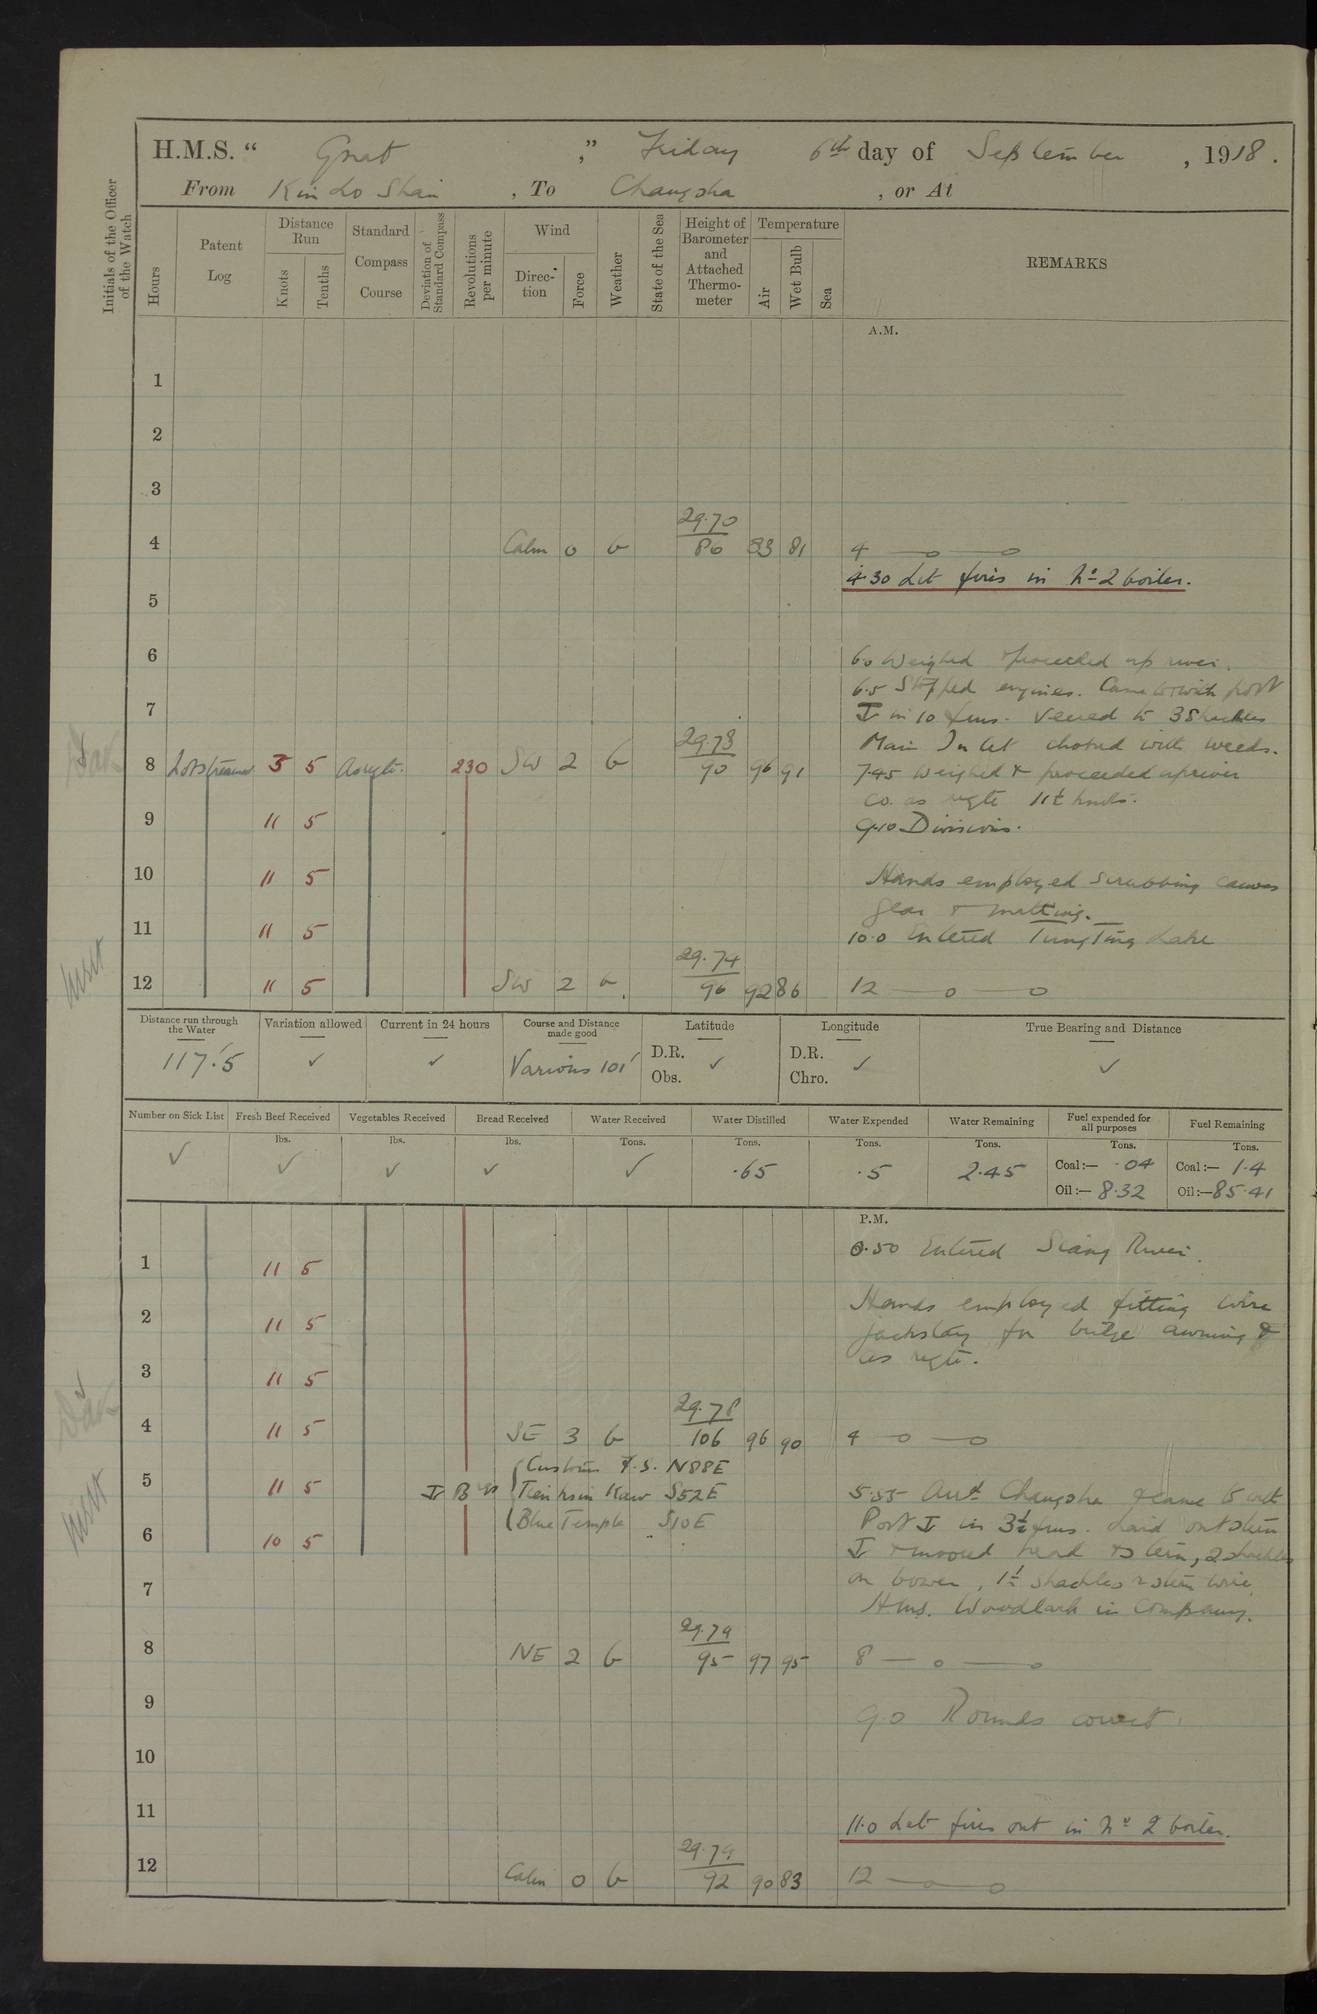 H.M.S. “ Gnat ,” Friday 6th day of September , 1918 .
From Kin Ho Shan , To Changsha , or At
Initials of the Officer of the Watch
Hours Patent Log Distance Run Knots Tenths Standard Compass Course Deviation of Standard Compass Revolutions per minute Wind Direc-tion Force Weather State of the Sea Height of Barometer and Attached Thermo-meter Temperature Air Wet Bulb Sea REMARKS
A.M.
1
2
3
4 Calm 0 b 29.70 86 83 81 4 — o — o
4.30 Lit fires in No 2 boiler.
5
6 6.0 Weighed & proceeded up river.
6.5 Stopped engines. Came to with port
7 in 10 fms. Veered to 3 Shackles
Main Inlet choked with weeds.
8 Not streamed 3 5 As reqte. 230 SW 2 b 29.73 90 96 91 7.45 Weighed & proceeded upriver
Co. as reqte 11½ knots.
9 11 5 9.10 Divisions.
10 11 5 Hands employed scrubbing canvas
gear & matting.
11 11 5 10.0 Entered Tung Ting Lake
12 11 5 SW 2 b 29.74 96 92 86 12 — o — o
Distance run through the Water Variation allowed Current in 24 hours Course and Distance made good Latitude Longitude True Bearing and Distance
117.'5 ✓ ✓ Various 101' D.R. Obs. ✓ D.R. Chro. ✓ ✓
Number on Sick List Fresh Beef Received Vegetables Received Bread Received Water Received Water Distilled Water Expended Water Remaining Fuel expended for all purposes Fuel Remaining
lbs. lbs. lbs. Tons. Tons. Tons. Tons. Tons. Tons.
✓ ✓ ✓ ✓ ✓ .65 .5 2.45 Coal:— .04 Coal:— 1.4
Oil:— 8.32 Oil:— 85.41
P.M.
0.50 Entered Siang River.
1 11 5
Hands employed fitting wire
2 11 5 jackstay for bridge awning &
as reqte.
3 11 5
4 11 5 SE 3 b 29.78 106 96 90 4 — o — o
Customs F.S. N88E
5 11 5 Bgs Kaw S52E 5.35 Arrd. Changsha & came to with
Blue Temple S10E Port in 3½ fms. Laid out stern
6 10 5
& moored head & stern, 2 shackles
7 on bower, 1½ shackles stern wire.
H.M.S. Woodlark in Company.
8 NE 2 b 29.79 95 97 95 8 — o — o
9 9.0 Rounds correct.
10
11 11.0 Let fires out in No 2 boiler.
12 Calm 0 b 29.79 92 90 83 12 — o — o